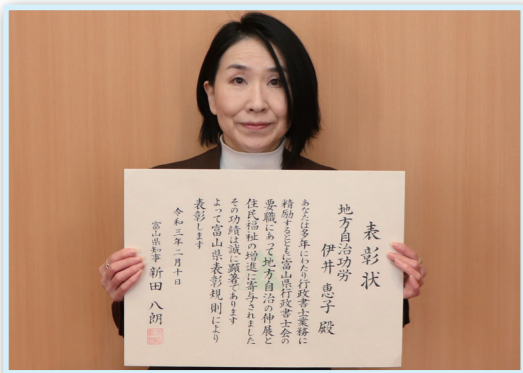 表彰状
地方自治功労
伊井恵子殿
あなたは多年にわたり行政書士業務に
精励するとともに富山県行政書士会の
要職にあって地方自治の伸展と
住民福祉の増進に寄与されました
その功績は誠に顕著であります
よって富山県表彰規則により
表彰します
令和三年二月十日
富山県知事 新田八朗